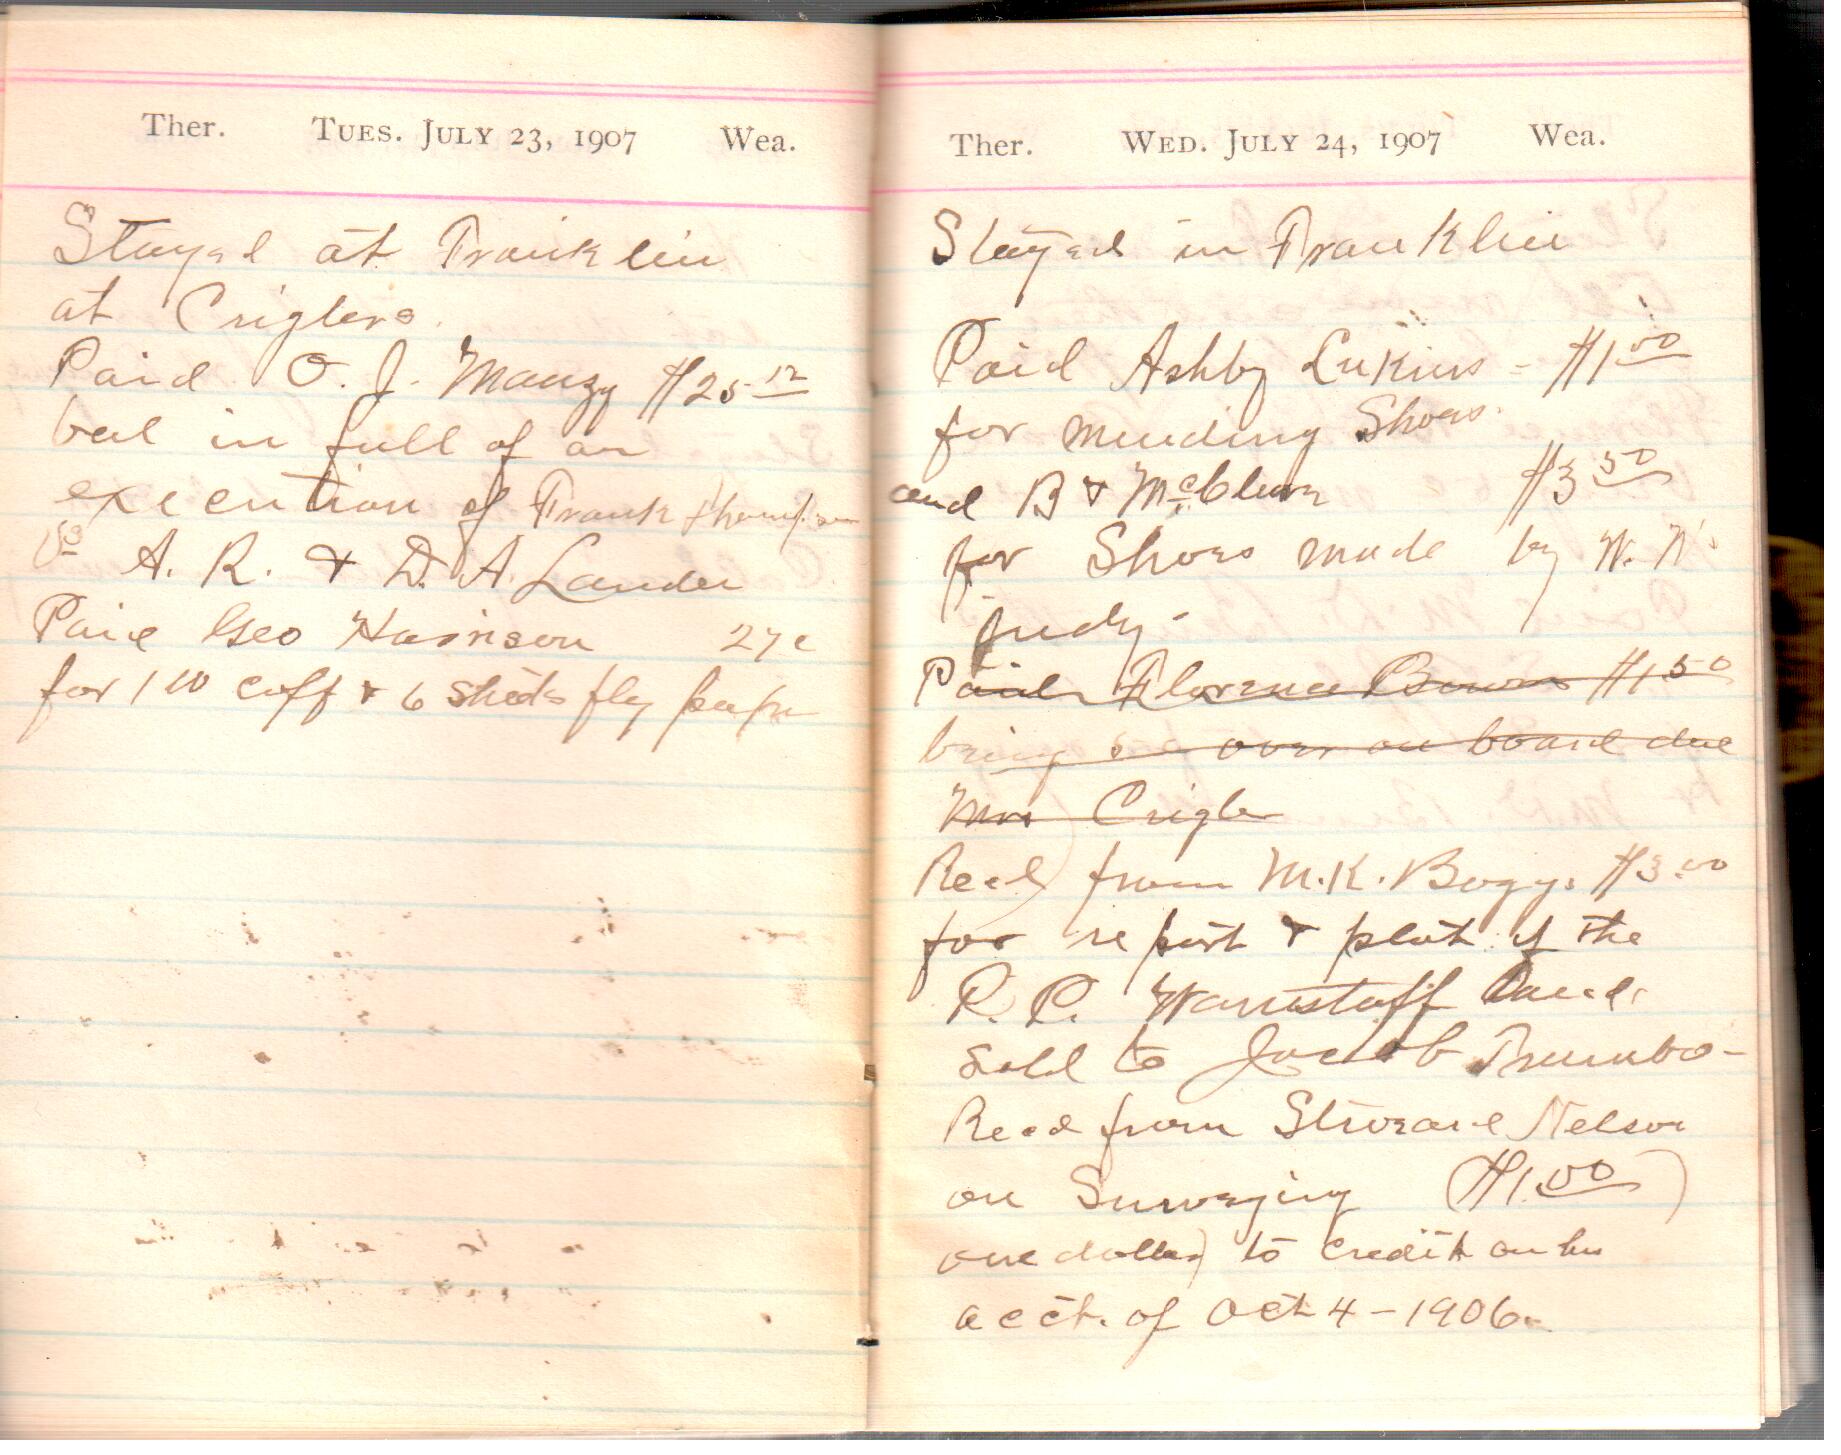 Ther. TUES. JULY 23, 1907 Wea.
Stayed at Franklin
at Criglers.
Paid O. J. Mauzy $25 12
bal in full of an
execution of Frank Thompson
vs A. R. & D. A. Lander
Paid Geo Harrison 27c
for 1 lb coff & 6 sheets fly paper
Ther. WED. JULY 24, 1907 Wea.
Stayed in Franklin
Paid Ashby Lukins - $1 00
for mending Shoes.
and B & McClure $3 50
for Shoes made by W. N.
Judy-
Paid Florence Bowers $1 50
being over on board due
Mrs Crigler
Recd from M.K. Boggs $3.00
for report & plat of the
R. P. Warnstaff Land
Sold to Jacob Trumbo-
Recd from Nelson
on Surveying ($1.00)
one dollar) to credit on his
acct. of Oct 4-1906.